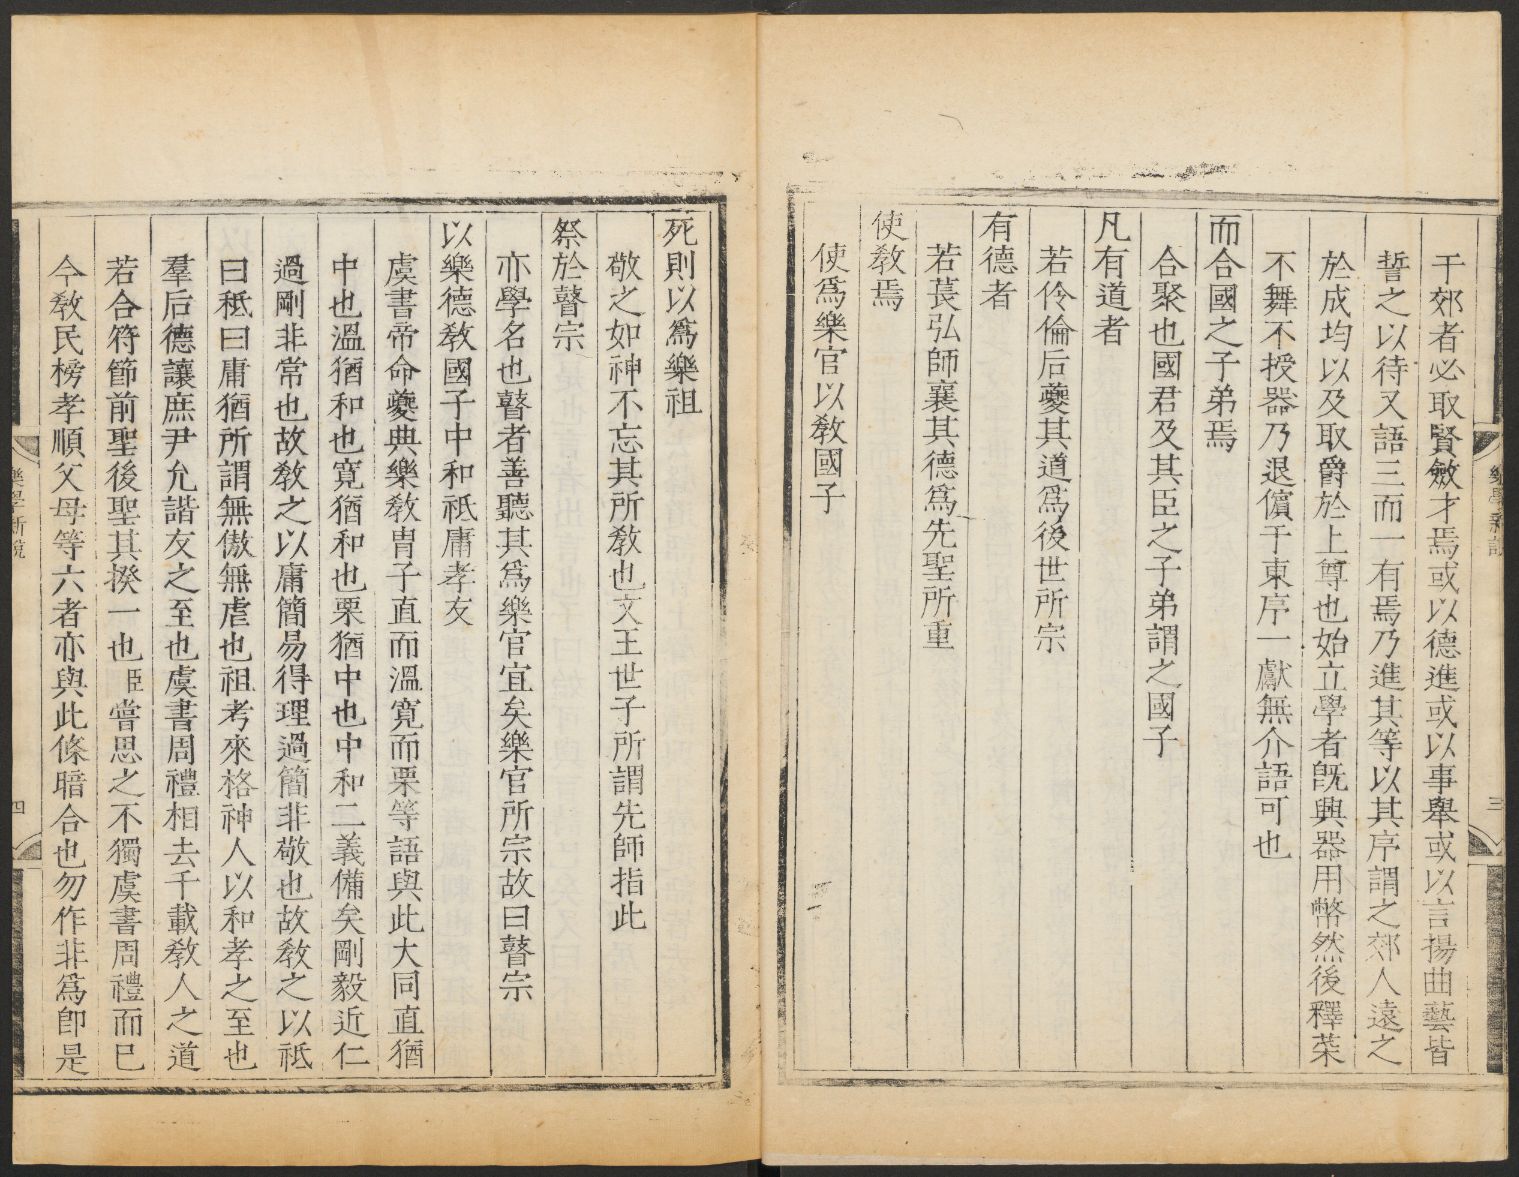 于郊者必取賢斂才焉或以德進或以事舉或以言揚曲藝皆
誓之以待又語三而一有焉乃進其等以其序謂之郊人遠之
於成均以及取爵於上尊也始立學者旣興器用幣然後釋菜
不舞不授器乃退儐于東序一獻無介語可也
而合國之子弟焉
合聚也國君及其臣之子弟謂之國子
凡有道者
若伶倫后夔其道爲後世所宗
有德者
若萇弘師襄其德爲先聖所重
使敎焉
使爲樂官以敎國子
樂學新說
三
死則以爲樂祖
敬之如神不忘其所敎也文王世子所謂先師指此
祭於瞽宗
亦學名也瞽者善聽其爲樂官宜矣樂官所宗故曰瞽宗
以樂德敎國子中和祗庸孝友
虞書帝命夔典樂敎胄子直而溫寬而栗等語與此大同直猶
中也溫猶和也寬猶和也栗猶中也中和二義備矣剛毅近仁
過剛非常也故敎之以庸簡易得理過簡非敬也故敎之以祗
曰祗曰庸猶所謂無傲無虐也祖考來格神人以和孝之至也
羣后德讓庶尹允諧友之至也虞書周禮相去千載敎人之道
若合符節前聖後聖其揆一也臣嘗思之不獨虞書周禮而已
今敎民榜孝順父母等六者亦與此條暗合也勿作非爲卽是
樂學新說
四